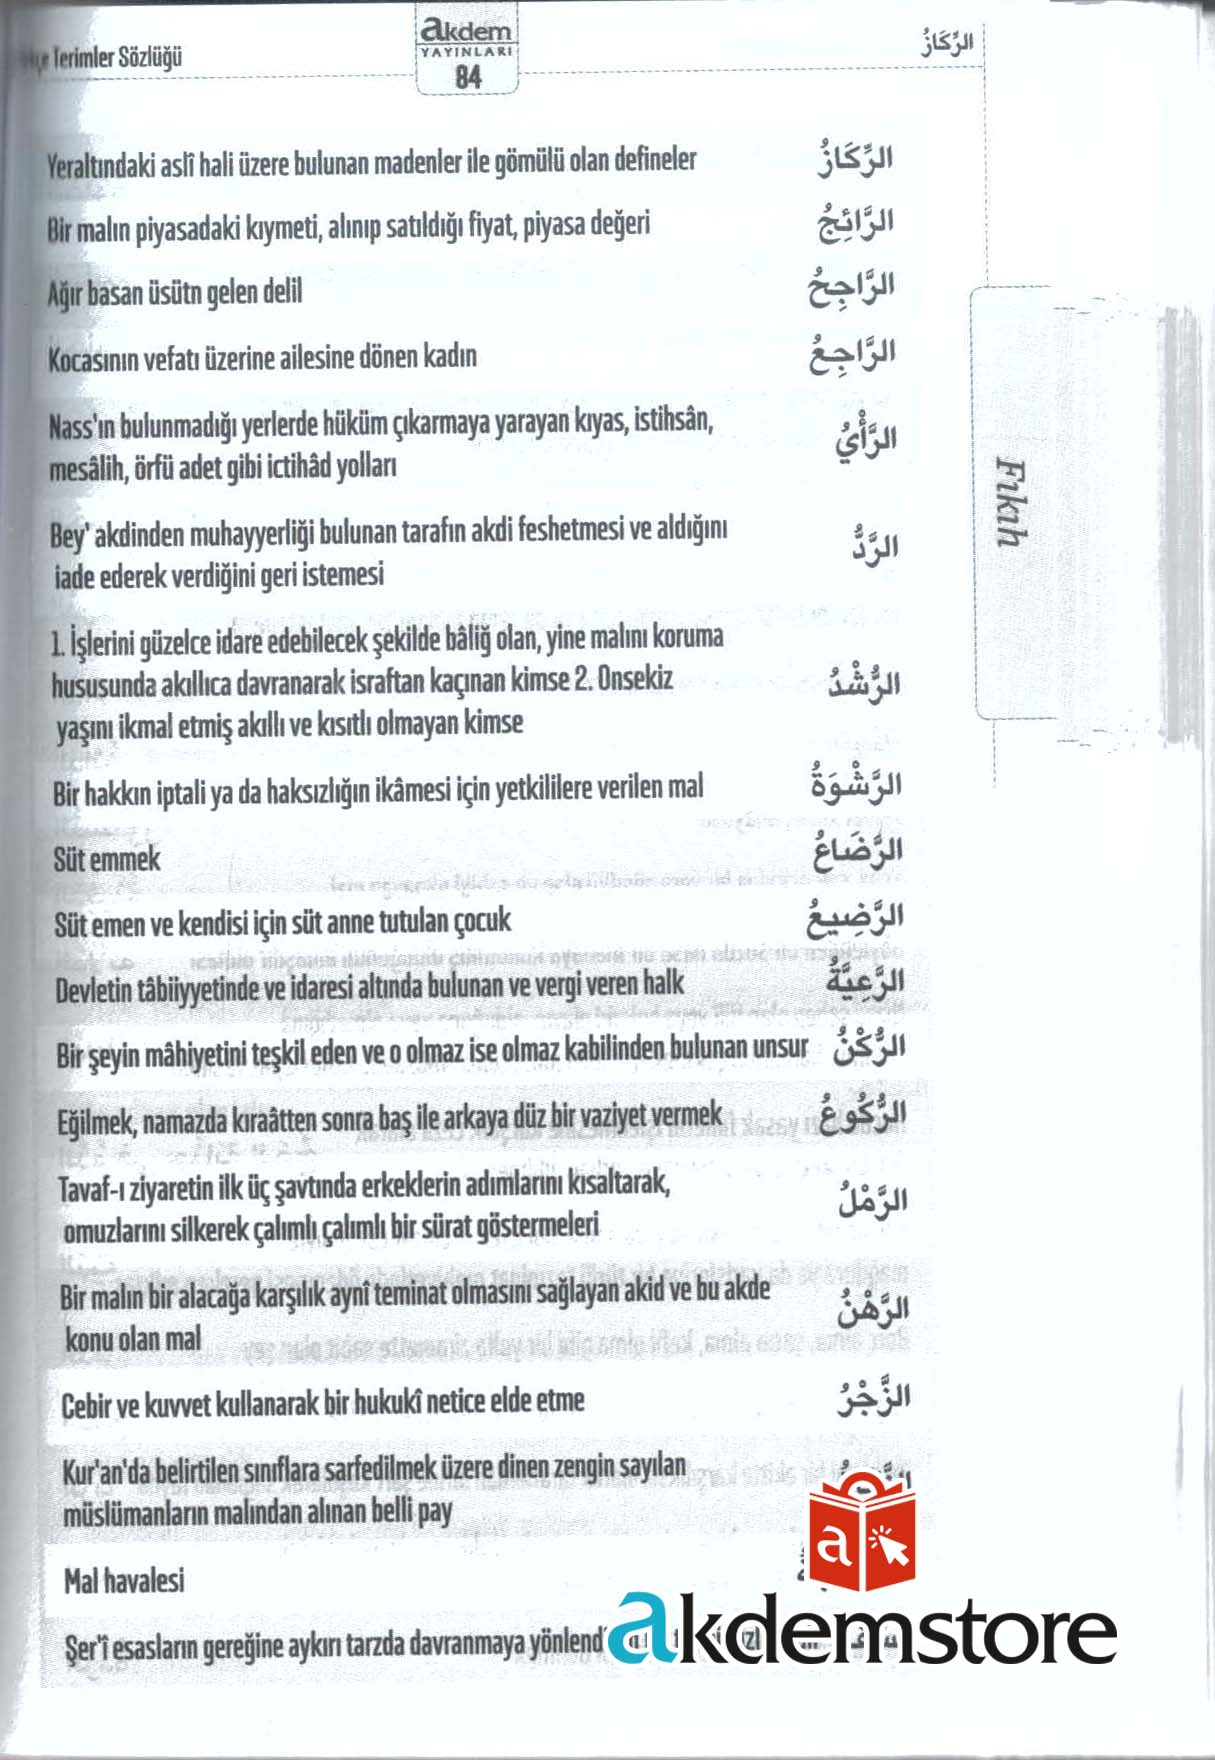 Terimler Sözlüğü
akdem
YAYINLARI
84
الرِّكَازُ
Yeraltındaki aslî hali üzere bulunan madenler ile gömülü olan defineler الرِّكَازُ
Bir malın piyasadaki kıymeti, alınıp satıldığı fiyat, piyasa değeri الرَّائِجُ
Ağır basan üsütn gelen delil الرَّاجِحُ
Kocasının vefatı üzerine ailesine dönen kadın الرَّاجِعُ
Nass'ın bulunmadığı yerlerde hüküm çıkarmaya yarayan kıyas, istihsân,
mesâlih, örfü adet gibi ictihâd yolları الرَّأْيُ
Bey' akdinden muhayyerliği bulunan tarafın akdi feshetmesi ve aldığını
iade ederek verdiğini geri istemesi الرَّدُّ
1. İşlerini güzelce idare edebilecek şekilde bâliğ olan, yine malını koruma
hususunda akıllıca davranarak israftan kaçınan kimse 2. Onsekiz الرُّشْدُ
yaşını ikmal etmiş akıllı ve kısıtlı olmayan kimse
Bir hakkın iptali ya da haksızlığın ikâmesi için yetkililere verilen mal الرَّشْوَةُ
Süt emmek الرَّضَاعُ
Süt emen ve kendisi için süt anne tutulan çocuk الرَّضِيعُ
Devletin tâbiiyyetinde ve idaresi altında bulunan ve vergi veren halk الرَّعِيَّةُ
Bir şeyin mâhiyetini teşkil eden ve o olmaz ise olmaz kabilinden bulunan unsur الرُّكْنُ
Eğilmek, namazda kıraâtten sonra baş ile arkaya düz bir vaziyet vermek الرُّكُوعُ
Tavaf-ı ziyaretin ilk üç şavtında erkeklerin adımlarını kısaltarak,
omuzlarını silkerek çalımlı çalımlı bir sürat göstermeleri الرَّمْلُ
Bir malın bir alacağa karşılık aynî teminat olmasını sağlayan akid ve bu akde
konu olan mal الرَّهْنُ
Cebir ve kuvvet kullanarak bir hukukî netice elde etme الزَّجْرُ
Kur'an'da belirtilen sınıflara sarfedilmek üzere dinen zengin sayılan
müslümanların malından alınan belli pay
Mal havalesi
Şer'î esasların gereğine aykırı tarzda davranmaya
Fıkıh
a
akdemstore